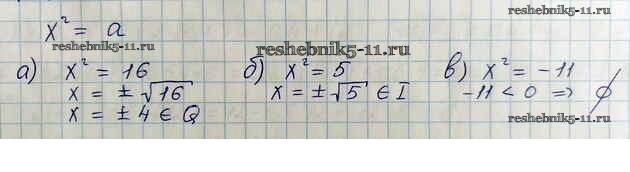 x² = a
reshebnik5-11.ru
reshebnik5-11.ru
reshebnik5-11.ru
а) x² = 16
x = ±√16
x = ±4 ∈ Q
б) x² = 5
x = ±√5 ∈ I
в) x² = -11
-11 < 0 => ∅
reshebnik5-11.ru